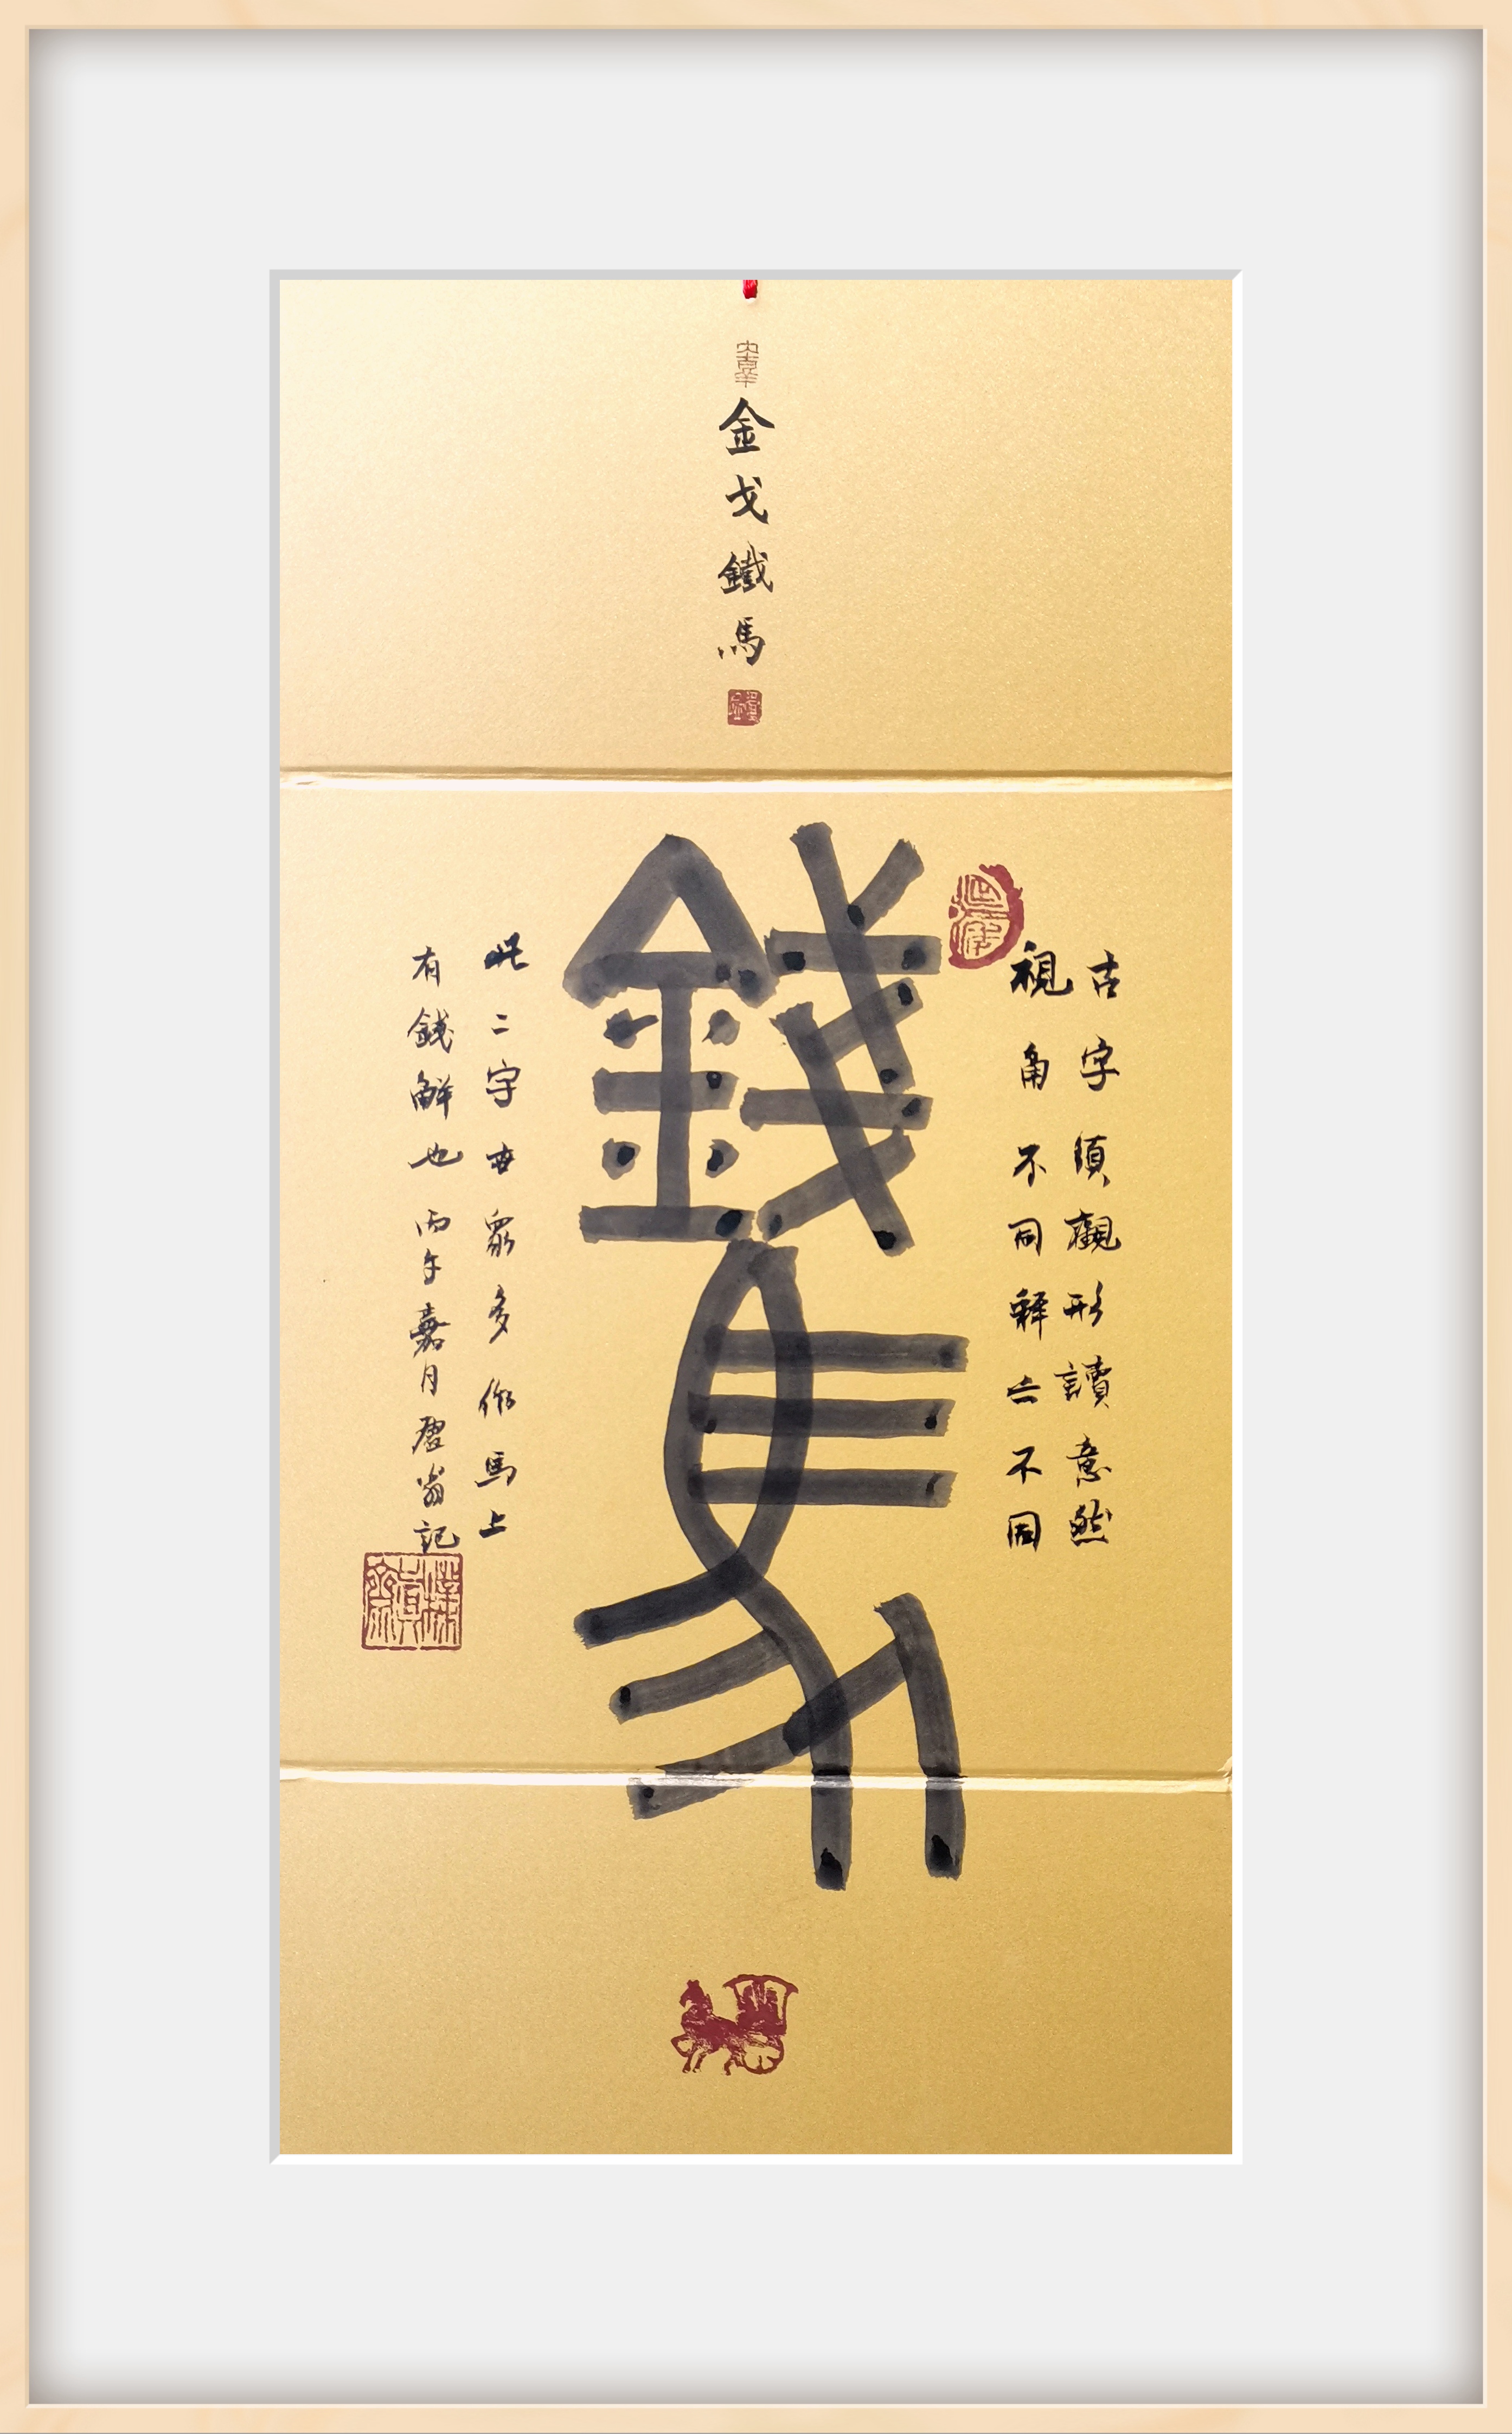 大吉羊
金戈鐵馬
古字須觀形讀意然
視角不同釋亦不同
錢馬
此二字亦眾多作馬上
有錢解也 丙午嘉月翁記
樸眞齋